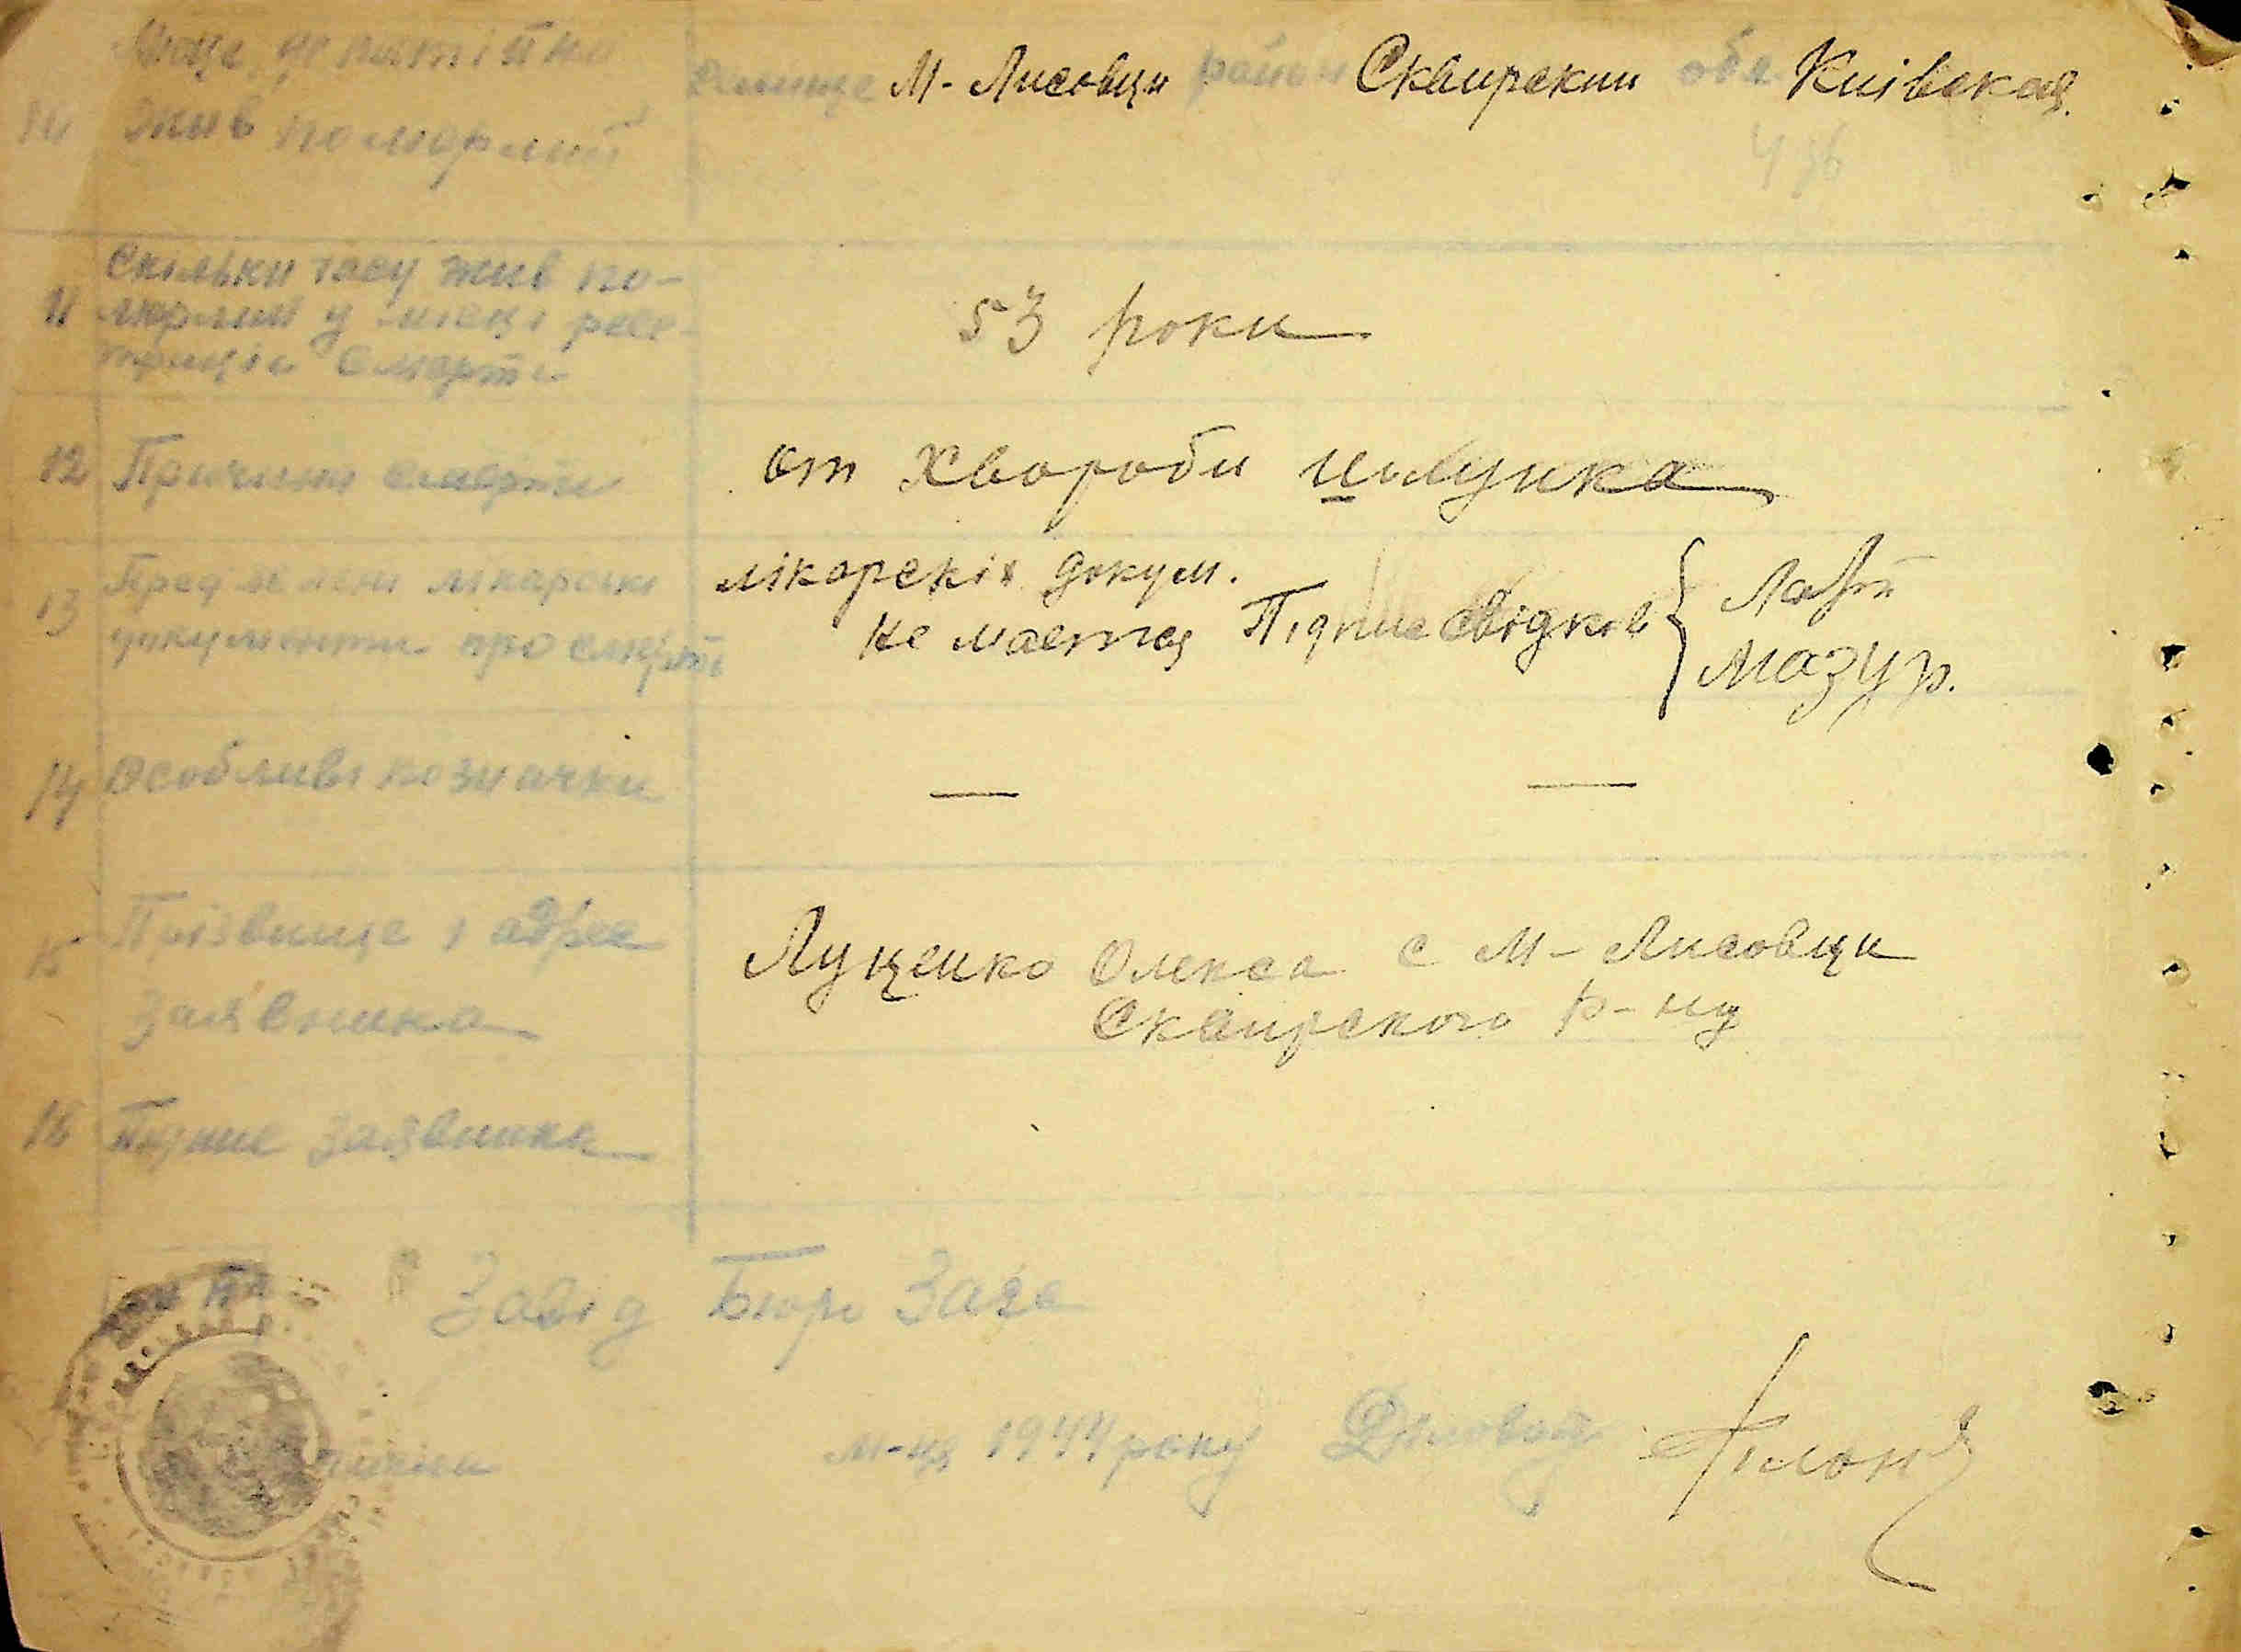 10
Місце, де постійно
жив померлий
селище М- Лисовци район Сквирский обл Київская
11
Скільки часу жив по-
мерлий у місці реес-
трації смерти
53 роки
12 Причина смерти
от хвороби шлунка
13
Пред'явлені лікарські
документи про смерть
лікорскіх докум.
не мается Підпис свідків
Мазур.
14 Особливі позначки
— —
15
Прізвище і адрес
Заявника
Луценко Олекса с М- Лисовци
Сквирского р-ну
16 Підпис заявника
Завід Бюро Загс
м-ця 1944 року Діловод